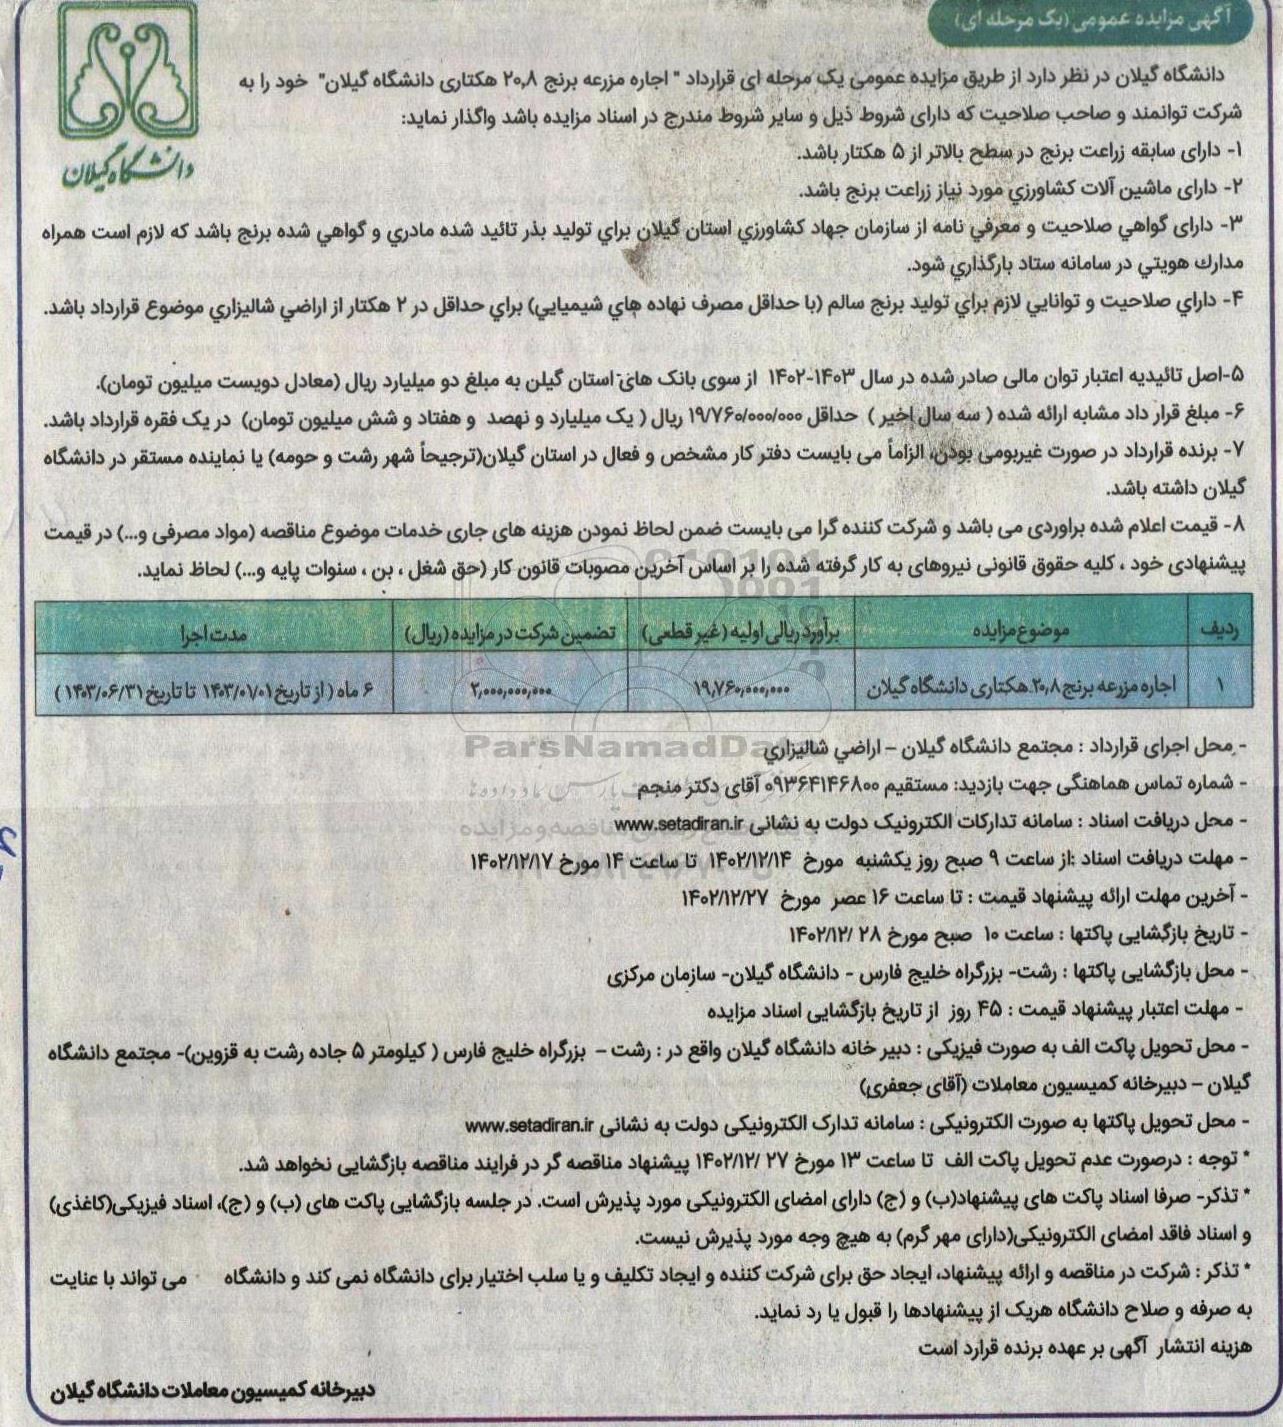 آگهی مزایده عمومی (یک مرحله ای)
دانشگاه گیلان
دانشگاه گیلان در نظر دارد از طریق مزایده عمومی یک مرحله ای قرارداد " اجاره مزرعه برنج ۲۰,۸ هکتاری دانشگاه گیلان" خود را به
شرکت توانمند و صاحب صلاحیت که دارای شروط ذیل و سایر شروط مندرج در اسناد مزایده باشد واگذار نماید:
۱- دارای سابقه زراعت برنج در سطح بالاتر از ۵ هکتار باشد.
۲- دارای ماشین آلات کشاورزي مورد نیاز زراعت برنج باشد.
۳- دارای گواهي صلاحیت و معرفي نامه از سازمان جهاد کشاورزي استان گیلان براي تولید بذر تائید شده مادري و گواهي شده برنج باشد که لازم است همراه
مدارك هویتي در سامانه ستاد بارگذاري شود.
۴- داراي صلاحیت و توانایي لازم براي تولید برنج سالم (با حداقل مصرف نهاده هاي شیمیایي) براي حداقل در ۲ هکتار از اراضي شالیزاري موضوع قرارداد باشد.
۵-اصل تائیدیه اعتبار توان مالی صادر شده در سال ۱۴۰۳-۱۴۰۲ از سوی بانک های استان گیلن به مبلغ دو میلیارد ریال (معادل دویست میلیون تومان).
۶- مبلغ قرار داد مشابه ارائه شده ( سه سال اخیر ) حداقل ۱۹/۷۶۰/۰۰۰/۰۰۰ ریال ( یک میلیارد و نهصد و هفتاد و شش میلیون تومان) در یک فقره قرارداد باشد.
۷- برنده قرارداد در صورت غیربومی بودن، الزاماً می بایست دفتر کار مشخص و فعال در استان گیلان(ترجیحاً شهر رشت و حومه) یا نماینده مستقر در دانشگاه
گیلان داشته باشد.
۸- قیمت اعلام شده براوردی می باشد و شرکت کننده گرا می بایست ضمن لحاظ نمودن هزینه های جاری خدمات موضوع مناقصه (مواد مصرفی و...) در قیمت
پیشنهادی خود ، کلیه حقوق قانونی نیروهای به کار گرفته شده را بر اساس آخرین مصوبات قانون کار (حق شغل ، بن ، سنوات پایه و...) لحاظ نماید.
ردیف موضوع مزایده برآورد ریالی اولیه (غیر قطعی) تضمین شرکت در مزایده (ریال) مدت اجرا
۱ اجاره مزرعه برنج ۲۰,۸ هکتاری دانشگاه گیلان ۱۹,۷۶۰,۰۰۰,۰۰۰ ۲,۰۰۰,۰۰۰,۰۰۰ ۶ ماه ( از تاریخ ۱۴۰۳/۰۱/۰۱ تا تاریخ ۱۴۰۳/۰۶/۳۱ )
ParsNamadData
- محل اجرای قرارداد : مجتمع دانشگاه گیلان – اراضي شالیزاري
- شماره تماس هماهنگی جهت بازدید: مستقیم ۰۹۳۶۴۱۴۶۸۰۰ آقای دکتر منجم
- محل دریافت اسناد : سامانه تدارکات الکترونیک دولت به نشانی www.setadiran.ir
- مهلت دریافت اسناد :از ساعت ۹ صبح روز یکشنبه مورخ ۱۴۰۲/۱۲/۱۴ تا ساعت ۱۴ مورخ ۱۴۰۲/۱۲/۱۷
- آخرین مهلت ارائه پیشنهاد قیمت : تا ساعت ۱۶ عصر مورخ ۱۴۰۲/۱۲/۲۷
- تاریخ بازگشایی پاکتها : ساعت ۱۰ صبح مورخ ۲۸ /۱۴۰۲/۱۲
- محل بازگشایی پاکتها : رشت- بزرگراه خلیج فارس - دانشگاه گیلان- سازمان مرکزی
- مهلت اعتبار پیشنهاد قیمت : ۴۵ روز از تاریخ بازگشایی اسناد مزایده
- محل تحویل پاکت الف به صورت فیزیکی : دبیر خانه دانشگاه گیلان واقع در : رشت – بزرگراه خلیج فارس ( کیلومتر ۵ جاده رشت به قزوین)- مجتمع دانشگاه
گیلان – دبیرخانه کمیسیون معاملات (آقای جعفری)
- محل تحویل پاکتها به صورت الکترونیکی : سامانه تدارک الکترونیکی دولت به نشانی www.setadiran.ir
* توجه : درصورت عدم تحویل پاکت الف تا ساعت ۱۳ مورخ ۲۷ /۱۴۰۲/۱۲ پیشنهاد مناقصه گر در فرایند مناقصه بازگشایی نخواهد شد.
* تذکر- صرفا اسناد پاکت های پیشنهاد(ب) و (ج) دارای امضای الکترونیکی مورد پذیرش است. در جلسه بازگشایی پاکت های (ب) و (ج)، اسناد فیزیکی(کاغذی)
و اسناد فاقد امضای الکترونیکی(دارای مهر گرم) به هیچ وجه مورد پذیرش نیست.
* تذکر : شرکت در مناقصه و ارائه پیشنهاد، ایجاد حق برای شرکت کننده و ایجاد تکلیف و یا سلب اختیار برای دانشگاه نمی کند و دانشگاه می تواند با عنایت
به صرفه و صلاح دانشگاه هریک از پیشنهادها را قبول یا رد نماید.
هزینه انتشار آگهی بر عهده برنده قرارد است
دبیرخانه کمیسیون معاملات دانشگاه گیلان